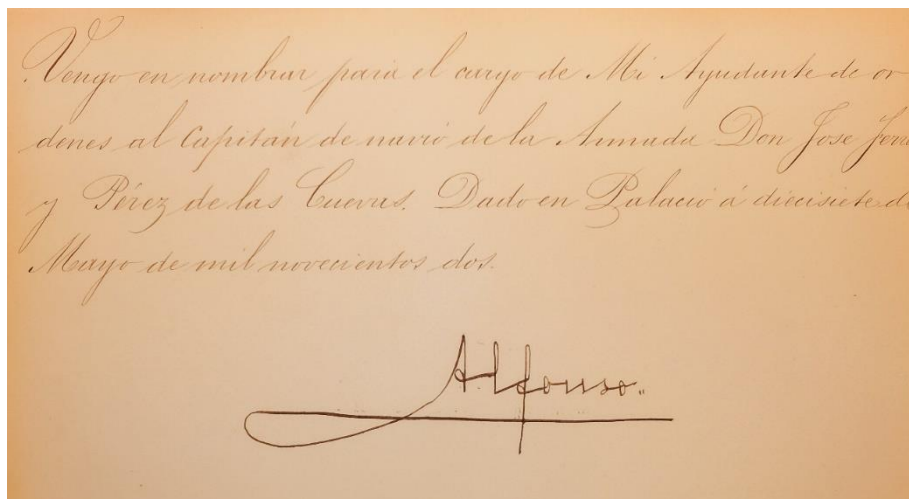 Vengo en nombrar para el cargo de Mi Ayudante de or
denes al Capitán de navio de la Armada Don Jose
y Pérez de las Cuevas. Dado en Palacio á diecisiete de
Mayo de mil novecientos dos.
Alfonso.